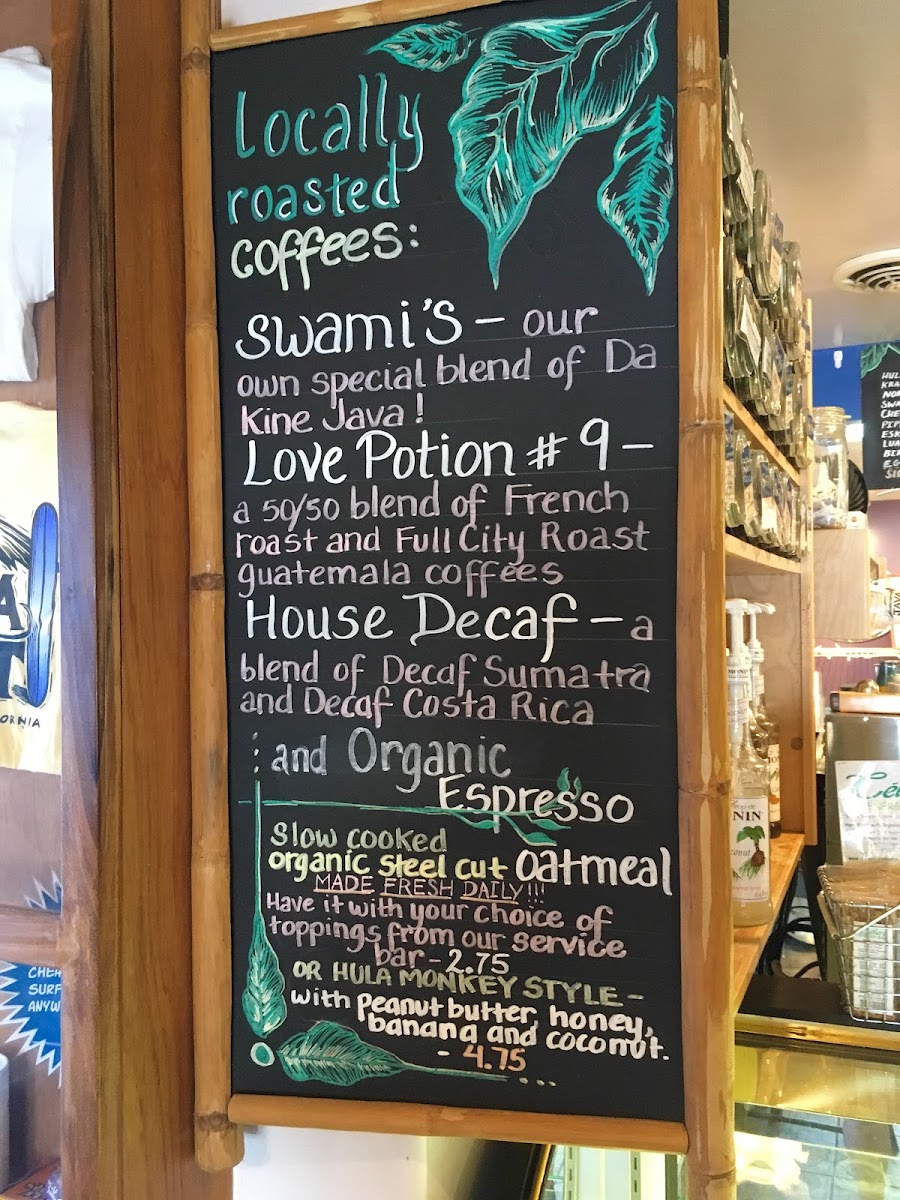 Locally
roasted
coffees:
Swami's - our
own special blend of Da
Kine Java!
Love Potion # 9 -
a 50/50 blend of French
roast and Full City Roast
guatemala coffees
House Decaf - a
blend of Decaf Sumatra
and Decaf Costa Rica
and Organic
Espresso
Slow cooked
organic steel cut oatmeal
MADE FRESH DAILY!!!
Have it with your choice of
toppings from our service
bar - 2.75
OR HULA MONKEY STYLE -
with peanut butter, honey,
banana and coconut.
- 4.75
...
SURF
ANYW
ORNIA
NIN